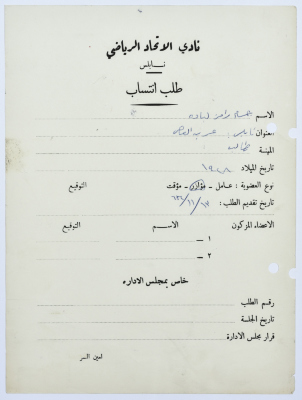 نادي الاتحاد الرياضي
نابلس
طلب انتساب
الاسم
العنوان نابلس
المهنة طالب
تاريخ الميلاد ١٩٤٨
نوع العضوية : عامل - مؤازر - مؤقت التوقيع
تاريخ تقديم الطلب :
الاعضاء المزكون الاسم التوقيع
١ -
٢ -
خاص بمجلس الاداره
رقم الطلب
تاريخ الجلسة
قرار مجلس الادارة
امين السر